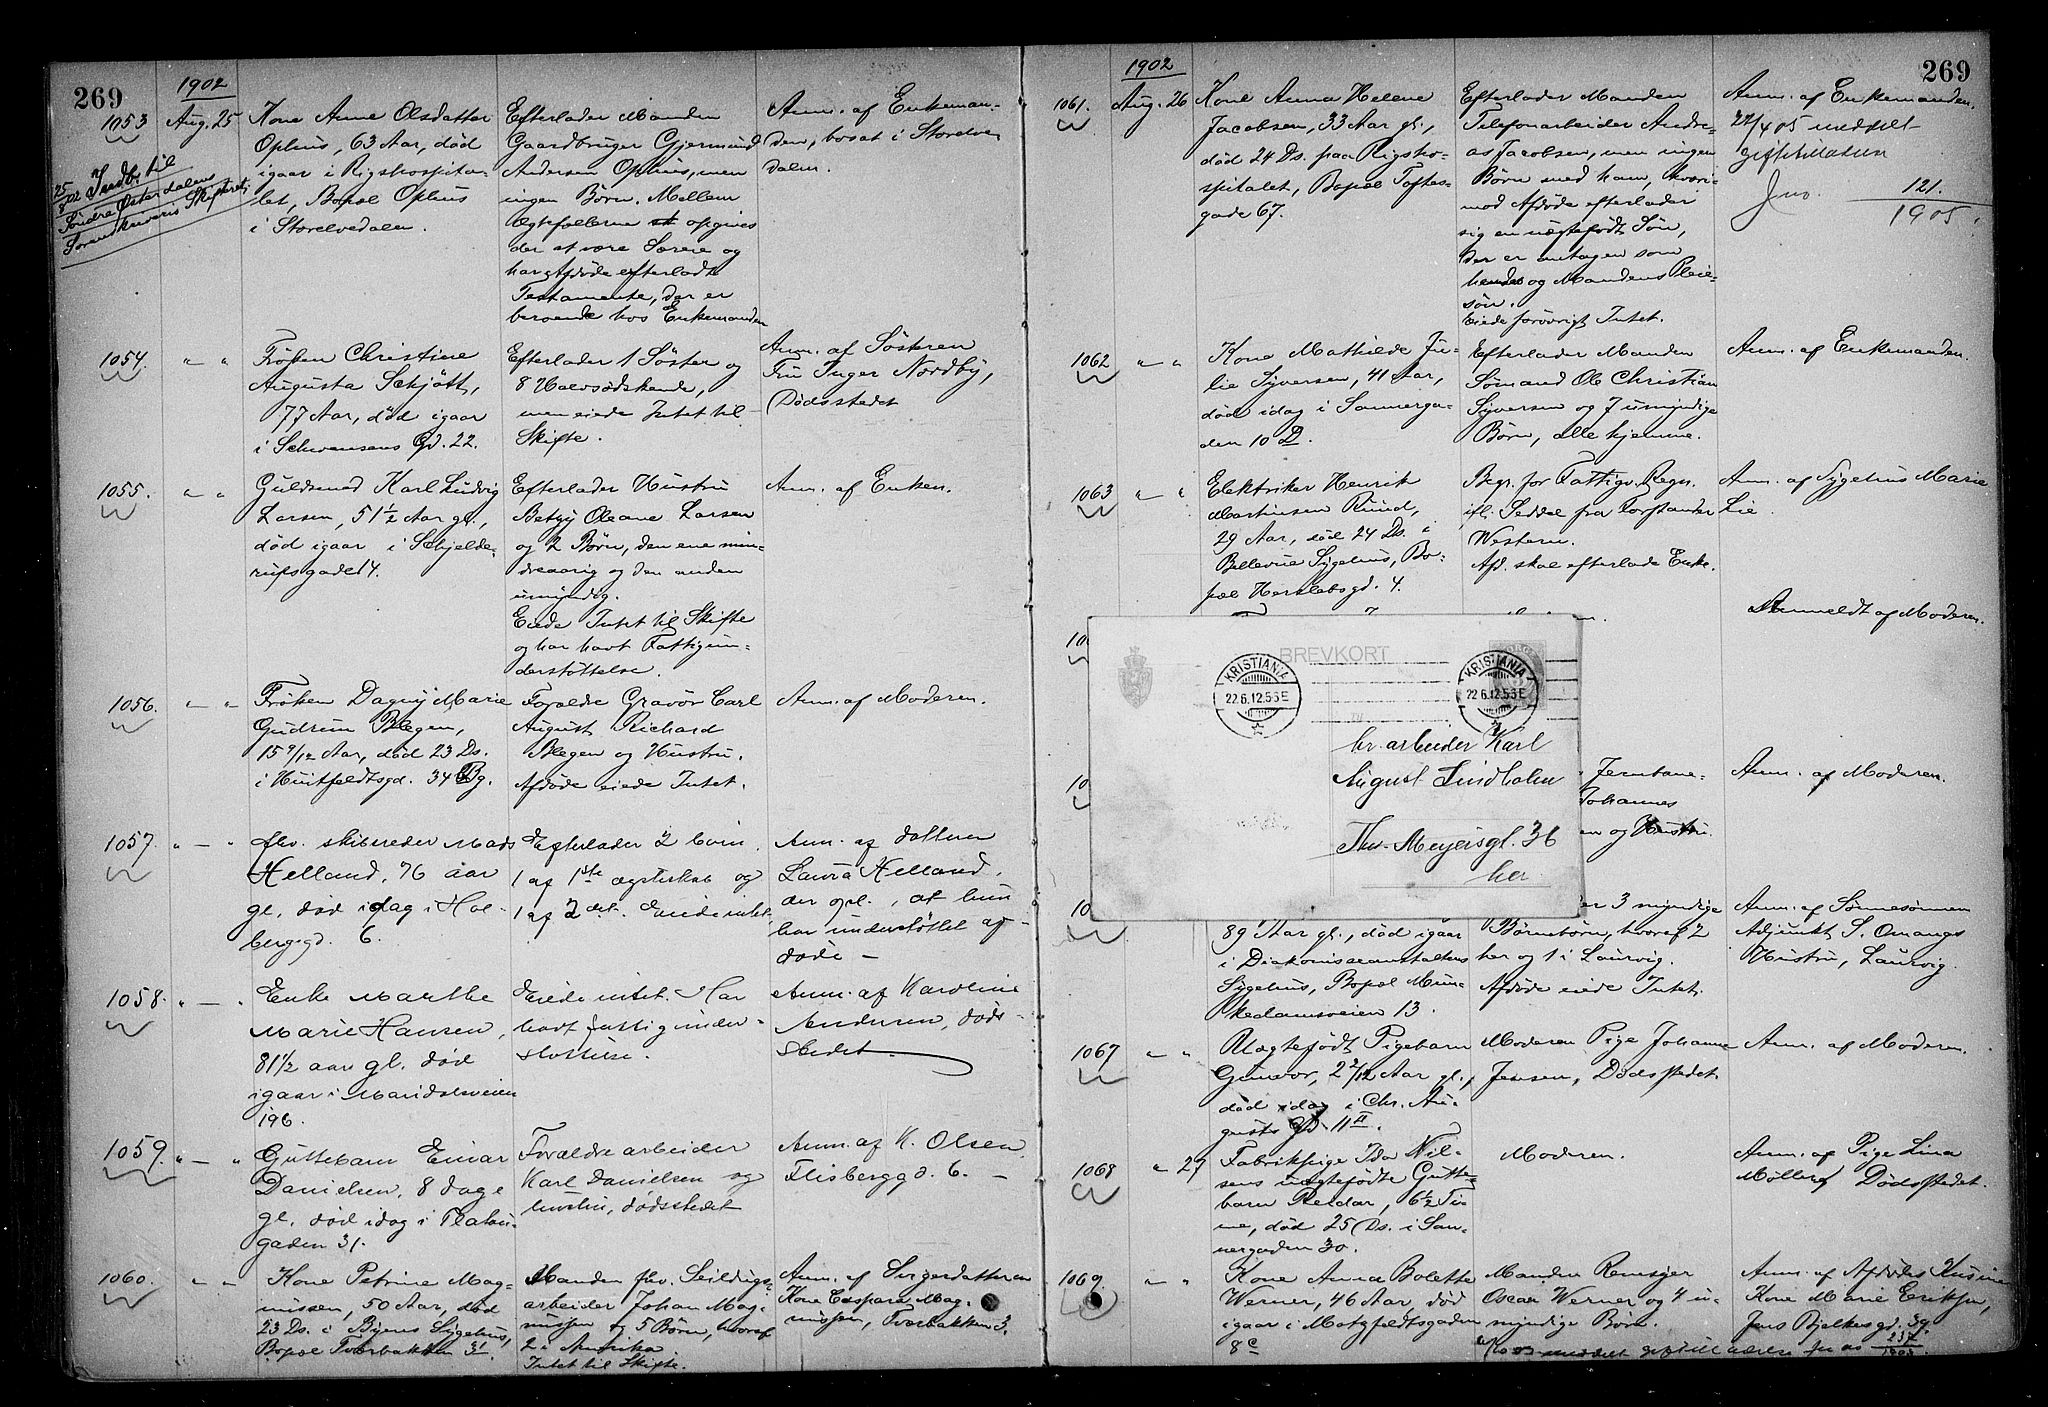 269
1902
1053
Aug. 25
Kone Anne Olsdatter
Ophus, 63 Aar, död
igaar i Rigshospita-
let, Bopæl Ophus
i Storelvedalen.
25/8 02 Indb. til
Söndre Østerdalens
Sorenskriveris Skifteret
Efterlader Manden
Gaardbruger Gjermund
Andersen Ophus, men
ingen Börn. Mellem
Ægtefællerne opgives
der at være Særeie og
har Afdöde efterladt
Testamente, der er
beroende hos Enkemanden
Anm. af Enkeman-
den, bosat i Storelve
dalen.
1054.
" "
Fröken Christine
Augusta Schjött,
77 Aar, död igaar
i Schwensens Gd. 22.
Efterlader 1 Söster og
8 Halvsödskende,
men eiede Intet til
Skifte.
Anm. af Sösteren
Fru Inger Nordby,
Dödsstedet
1055.
" "
Guldsmed Karl Ludvig
Larsen, 51 1/2 Aar gl.,
död igaar i Schjelde-
rupsgade 14.
Efterlader Hustru
Betzy Oleane Larsen
og 2 Börn, den ene min-
dreaarig og den anden
umyndig.
Eiede Intet til Skifte
og har havt Fattigun-
derstöttelse.
Anm. af Enken.
1056.
" "
Fröken Dagny Marie
Gudrun Blegen,
15 9/12 Aar, död 23 Ds.
i Huitfeldtsgd. 34 Bg.
Forældre Gravör Carl
August Richard
Blegen og Hustru.
Afdöde eiede Intet.
Anm. af Moderen.
1057.
" — "
fhv. skibsreder Mads
Helland, 76 aar
gl., död idag i Hol-
bergsgd. 6.
Efterlader 2 börn,
1 af 1ste ægteskab og
1 af 2det. Eiede intet
Anm. af datteren
Laura Helland,
der opl., at hun
har understöttet af-
döde —
1058.
" — "
Enke Marthe
Marie Hansen,
81 1/2 aar gl. död
igaar i Maridalsveien
196.
Eiede intet. Har
havt fattigunder-
støttelse.
Anm. af Karoline
Andersen, döds-
stedet
1059.
" — "
Guttebarn Einar
Danielsen, 8 dage
gl., död idag i Flatou-
gaden 31.
Forældre arbeider
Karl Danielsen og
hustru, dödsstedet
Anm. af K. Olsen,
Flisberggd. 6. —
1060.
" "
Kone Petrine Mag-
nussen, 50 Aar, död
23 Ds. i Byens Sygehus,
Bopæl Tværbakken 3.
Manden fhv. Seildugs-
arbeider Johan Mag-
nussen og 5 Börn, hvoraf
2 i Amerika.
Intet til Skifte.
Anm. af Svigerdatteren
Kone Caspara Mag-
nussen, Tværbakken 3.
269
1902
1061.
Aug. 26
Kone Anna Helene
Jacobsen, 33 Aar gl.,
död 24 Ds. paa Rigsho-
spitalet, Bopæl Toftes-
gade 67.
Efterlader Manden
Telefonarbeider Andre-
as Jacobsen, men ingen
Börn med ham, hvori-
mod Afdöde efterlader
sig en uægtefödt Sön,
der er antagen som
hendes og Mandens Pleie-
sön.
Eiede forövrigt Intet.
Anm. af Enkemanden.
22/4 05 meddelt
gifttilladelse
Jno. 121.
1905.
1062
" "
Kone Mathilde Ju-
lie Syversen, 41 Aar,
död idag i Sannerga-
den 10 D.
Efterlader Manden
Sömand Ole Christian
Syversen og 7 umyndige
Börn, alle hjemme.
Anm. af Enkemanden.
1063
" "
Elektriker Henrik
Martinsen Rund,
29 Aar, död 24 Ds. i
Bellevue Sygehus, Bo-
pæl Herslebsgd. 4.
Begr. for Fattigv. Regn.
ifl. Seddel fra Forstander
Western.
Afd. skal efterlade Enke.
Anm. af Sygehus Marie
Lie.
Anmeldt af Moderen.
BREVKORT
KRISTIANIA
22.6.12.5-6E
KRISTIANIA
22.6.12.5-6E
hr. arbeider Karl
August Lindholm
Thv. Meyersgt. 36
her
Jernbane-
Johannes
en og Hustru.
Anm. af Moderen.
89 Aar gl., död igaar
i Diakonisseanstaltens
Sygehus, Bopæl Mun-
kedamsveien 13.
er 3 myndige
Börnebörn, hvoraf 2
her og 1 i Laurvig.
Afdöde eiede Intet.
Anm. af Sønnesønnen
Adjunkt S. Omangs
Hustru, Laurvig.
1067
" "
Uægtefödt Pigebarn
Gunvor, 2 2/12 Aar gl.,
död idag i Chr. Au-
gusts Gd. 11 II.
Moderen Pige Johanne
Jensen, Dödsstedet.
Anm. af Moderen.
1068
" 27
Fabrikpige Ida Nil-
sens uægtefödte Gutte-
barn Reidar, 6 1/2 Ti-
me, död 25 Ds. i San-
nergaden 30.
Moderen.
Anm. af Pige Lina
Møller, Dödsstedet.
1069.
" "
Kone Anna Bolette
Werner, 46 Aar, död
igaar i Motzfeldtsgaden
8 c
Manden Remsejer
Oscar Werner og 4 u-
myndige Börn.
Anm. af Afdödes Kusine
Kone Marie Eriksen,
Jens Bjelkesgd. 39.